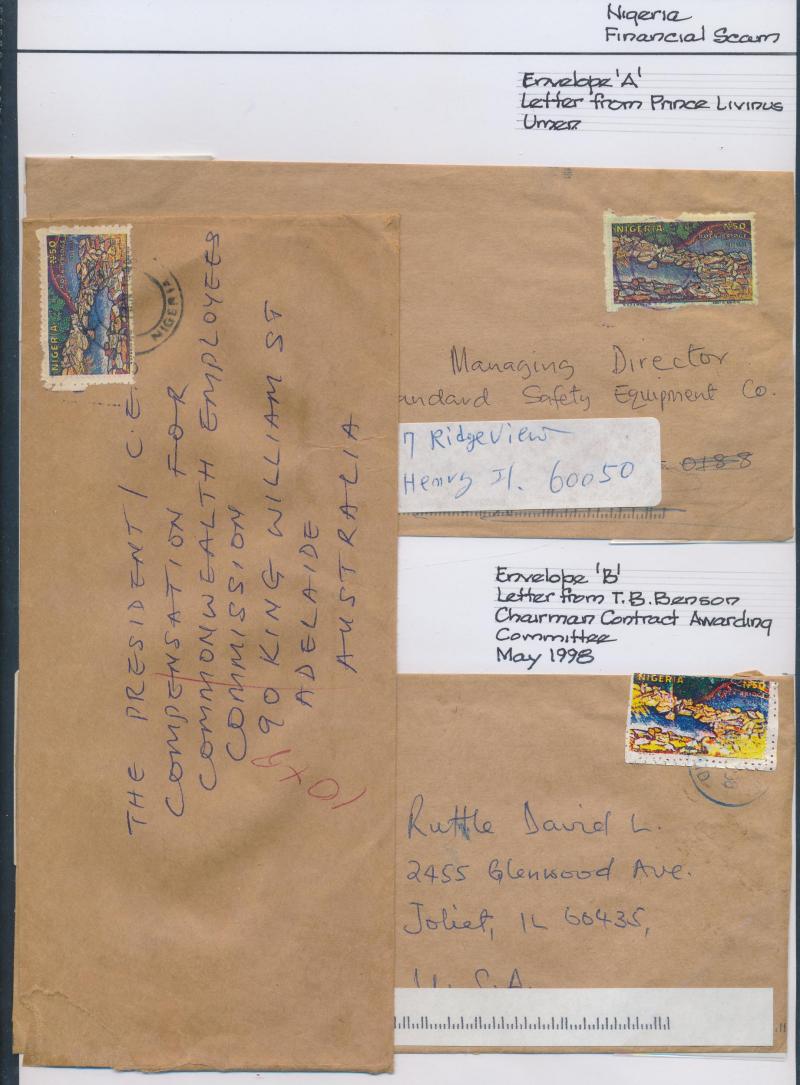 Nigeria
Financial Scam
Envelope 'A'
Letter from Prince Livinus
Umen
NIGERIA N50
Managing Director
andard Safety Equipment Co.
7 Ridgeview
Henry Il. 60050
0188
NIGERIA N50
NIGERIA
THE PRESIDENT / C.E.
COMPENSATION FOR
COMMONWEALTH EMPLOYEES
COMMISSION
90 KING WILLIAM ST
ADELAIDE
AUSTRALIA
Envelope 'B'
Letter from T.B.Benson
Chairman Contract Awarding
Committee
May 1998
NIGERIA N50
Ruttle David L.
2455 Glenwood Ave.
Joliet, IL 60435,
U.S.A.